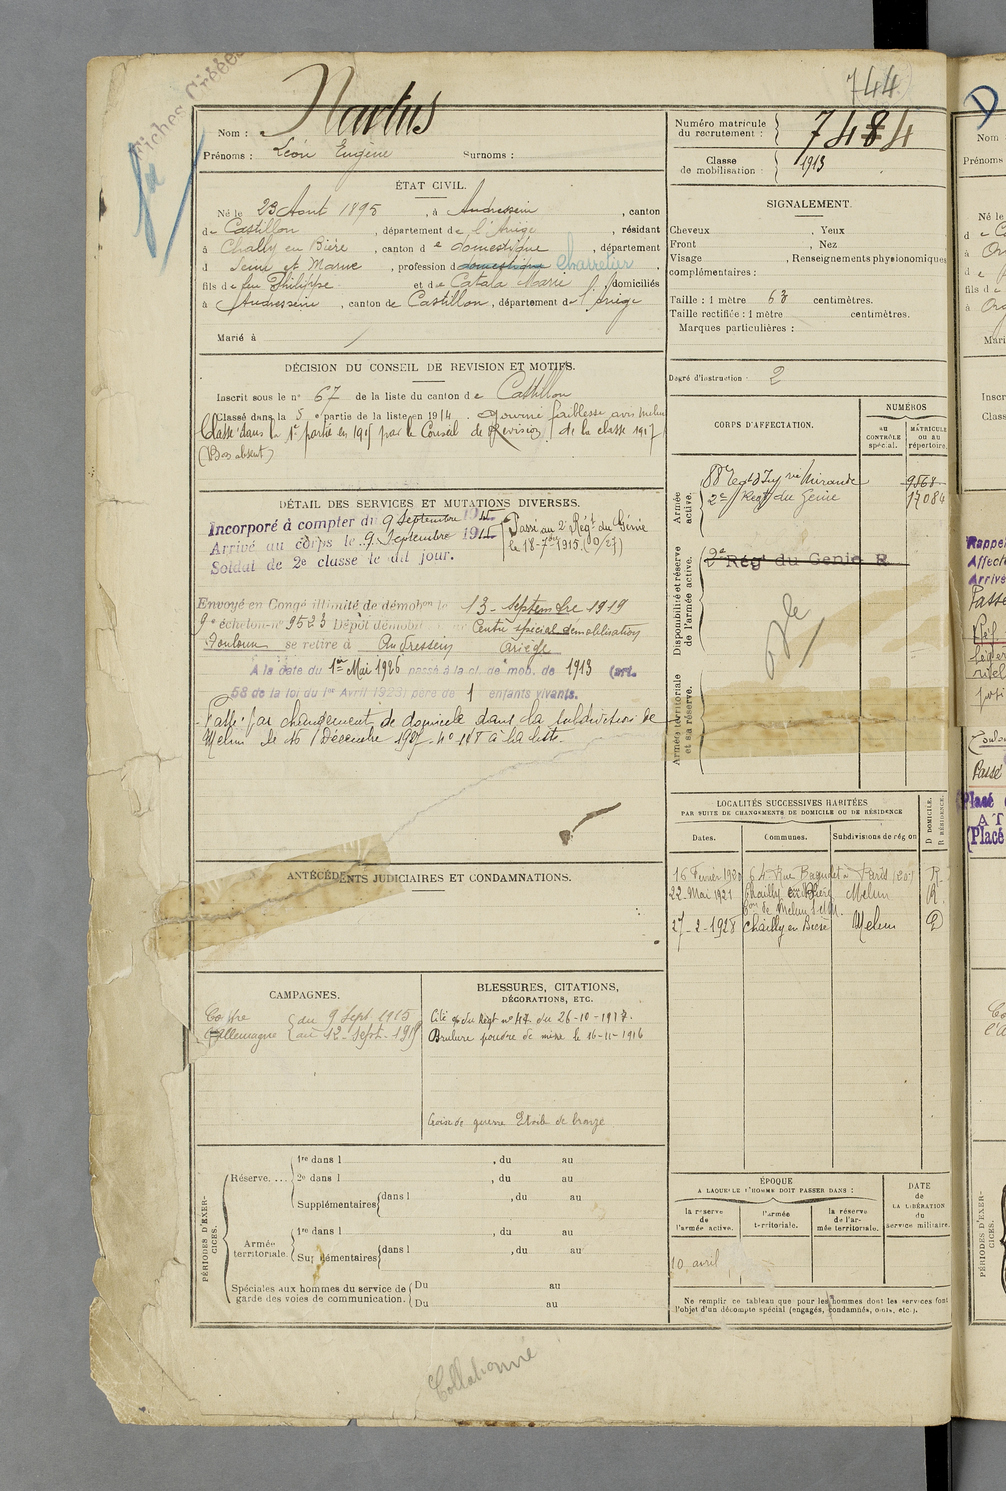 Fiches Créées
744
Nom :
Prénoms : Léon Eugène Surnoms :
Numéro matricule
du recrutement :
Classe
de mobilisation : 1913
ÉTAT CIVIL.
Né le 23 Aout 1895, à Audressein, canton
de Castillon, département de l'Ariège, résidant
à Chailly en Bière, canton de domestique, département
d Seine et Marne, profession d domestique Charretier,
fils de feu Philippe et de Catala Marie domiciliés
à Audressein, canton de Castillon, département de l'Ariège
Marié à
SIGNALEMENT.
Cheveux , Yeux
Front , Nez
Visage , Renseignements physionomiques
complémentaires :
Taille : 1 mètre 63 centimètres.
Taille rectifiée : 1 mètre centimètres.
Marques particulières :
Degré d'instruction : 2
DÉCISION DU CONSEIL DE REVISION ET MOTIFS.
Inscrit sous le n° 67 de la liste du canton de Castillon
Classé dans la 5e partie de la liste en 1914. Ajourné faiblesse
Classé dans la 1e partie en 1915 par le Conseil de Revision de la classe 1917
(Bon absent)
CORPS D'AFFECTATION.
NUMÉROS
au
CONTRÔLE
spécial.
MATRICULE
ou au
répertoire.
Armée
active.
88 Regt d'Infie Mirande 9568
2e Regt du Génie 17084
Disponibilité et réserve
de l'armée active.
2e Rég' du Genie R
Armée territoriale
et sa réserve.
DÉTAIL DES SERVICES ET MUTATIONS DIVERSES.
Incorporé à compter du 9 Septembre 1915.
Arrivé au corps le 9 Septembre 1915
Soldat de 2e classe le dit jour.
Passé au 2e Régt du Génie
Envoyé en Congé illimité de démobon le 13 Septembre 1919
9e échelon n° 9523 Dépôt démobilr Centre spécial démobilisation
Toulouse se retire à Audressein Ariège
A la date du 1er Mai 1926 passé à la cl. de mob. de 1913 (art.
58 de la loi du 1er Avril 1923) père de 1 enfants vivants.
Passé par changement de domicile dans la subdivision de
Melun le 16 Décembre 1927
LOCALITÉS SUCCESSIVES HABITÉES
PAR SUITE DE CHANGEMENTS DE DOMICILE OU DE RÉSIDENCE
Dates. Communes. Subdivisions de région
D DOMICILE.
R RÉSIDENCE.
16 Fevrier 1920 64 Rue Bagnolet à Paris R.
22 Mai 1921 Chailly en Bière Melun R.
27-2-1928 Chailly en Bière Melun D
ANTÉCÉDENTS JUDICIAIRES ET CONDAMNATIONS.
CAMPAGNES.
Contre du 9 Sept 1915
l'Allemagne au 12 Sept. 1919
BLESSURES, CITATIONS,
DÉCORATIONS, ETC.
Cité o/ du Régt n° 47 du 26-10-1917.
Brulure poudre de mine le 16-11-1916
Croix de guerre Etoile de bronze
PÉRIODES D'EXER-
CICES.
Réserve....
1re dans l , du au
2e dans l , du au
Supplémentaires dans l , du au
Armée
territoriale.
1re dans l , du au
Supplémentaires dans l , du au
Spéciales aux hommes du service de
garde des voies de communication.
Du au
Du au
ÉPOQUE
A LAQUELLE L'HOMME DOIT PASSER DANS :
la réserve
de
l'armée active.
l'armée
territoriale.
la réserve
de l'ar-
mée territoriale.
DATE
de
LA LIBÉRATION
du
service militaire.
10 avril
Ne remplir ce tableau que pour les hommes dont les services font
l'objet d'un décompte spécial (engagés, condamnés, omis, etc.).
Collationné